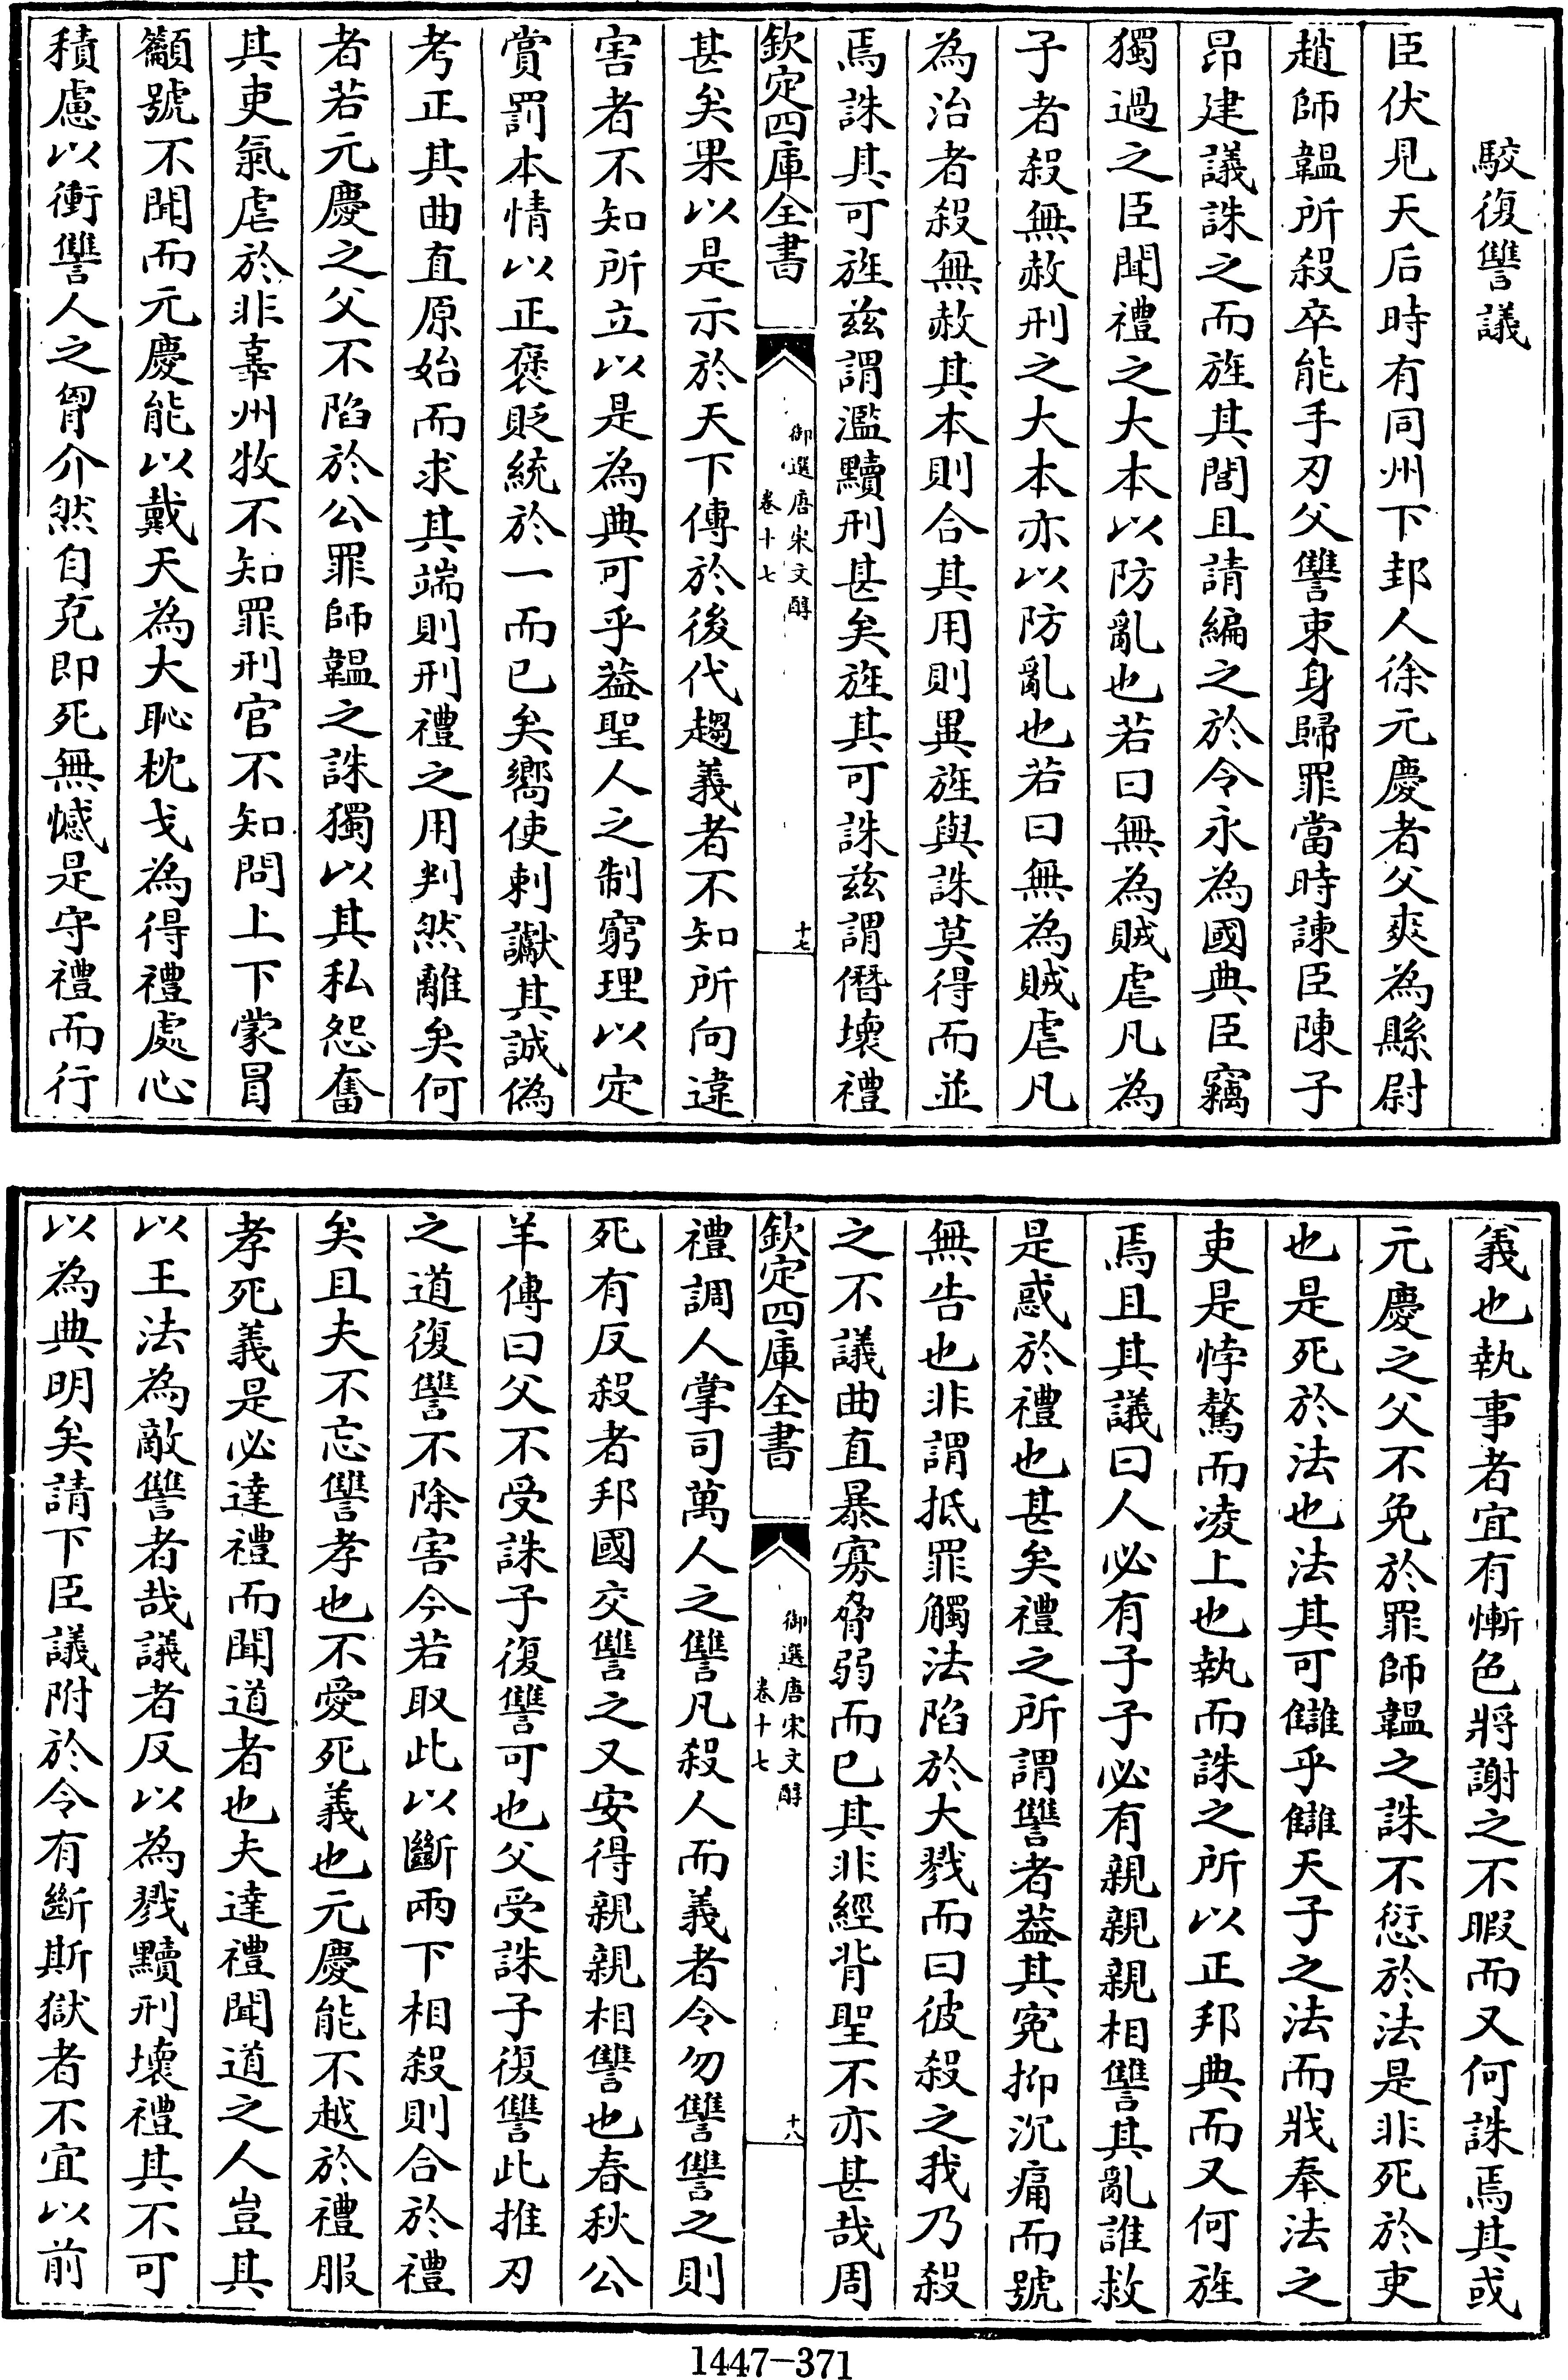 駮復讐議
臣伏見天后時有同州下邽人徐元慶者父爽為縣尉
趙師韞所殺卒能手刃父讐束身歸罪當時諫臣陳子
昂建議誅之而旌其閭且請編之於令永為國典臣竊
獨過之臣聞禮之大本以防亂也若曰無為賊虐凡為
子者殺無赦刑之大本亦以防亂也若曰無為賊虐凡
為治者殺無赦其本則合其用則異旌與誅莫得而並
焉誅其可旌兹謂濫黷刑甚矣旌其可誅兹謂僭壞禮
欽定四庫全書
御選唐宋文醇
卷十七
十七
甚矣果以是示於天下傳於後代趨義者不知所向違
害者不知所立以是為典可乎葢聖人之制窮理以定
賞罰本情以正褒貶統於一而已矣嚮使刺讞其誠偽
考正其曲直原始而求其端則刑禮之用判然離矣何
者若元慶之父不陷於公罪師韞之誅獨以其私怨奮
其吏氣虐於非辜州牧不知罪刑官不知問上下蒙冒
籲號不聞而元慶能以戴天為大恥枕戈為得禮處心
積慮以衝讐人之胷介然自克即死無憾是守禮而行
義也執事者宜有慚色將謝之不暇而又何誅焉其或
元慶之父不免於罪師韞之誅不愆於法是非死於吏
也是死於法也法其可讎乎讎天子之法而戕奉法之
吏是悖驁而凌上也執而誅之所以正邦典而又何旌
焉且其議曰人必有子子必有親親親相讐其亂誰救
是惑於禮也甚矣禮之所謂讐者葢其寃抑沉痛而號
無告也非謂抵罪觸法陷於大戮而曰彼殺之我乃殺
之不議曲直暴寡脅弱而已其非經背聖不亦甚哉周
欽定四庫全書
御選唐宋文醇
卷十七
十八
禮調人掌司萬人之讐凡殺人而義者令勿讐讐之則
死有反殺者邦國交讐之又安得親親相讐也春秋公
羊傳曰父不受誅子復讐可也父受誅子復讐此推刃
之道復讐不除害今若取此以斷兩下相殺則合於禮
矣且夫不忘讐孝也不愛死義也元慶能不越於禮服
孝死義是必達禮而聞道者也夫達禮聞道之人豈其
以王法為敵讐者哉議者反以為戮黷刑壞禮其不可
以為典明矣請下臣議附於令有斷斯獄者不宜以前
1447-371